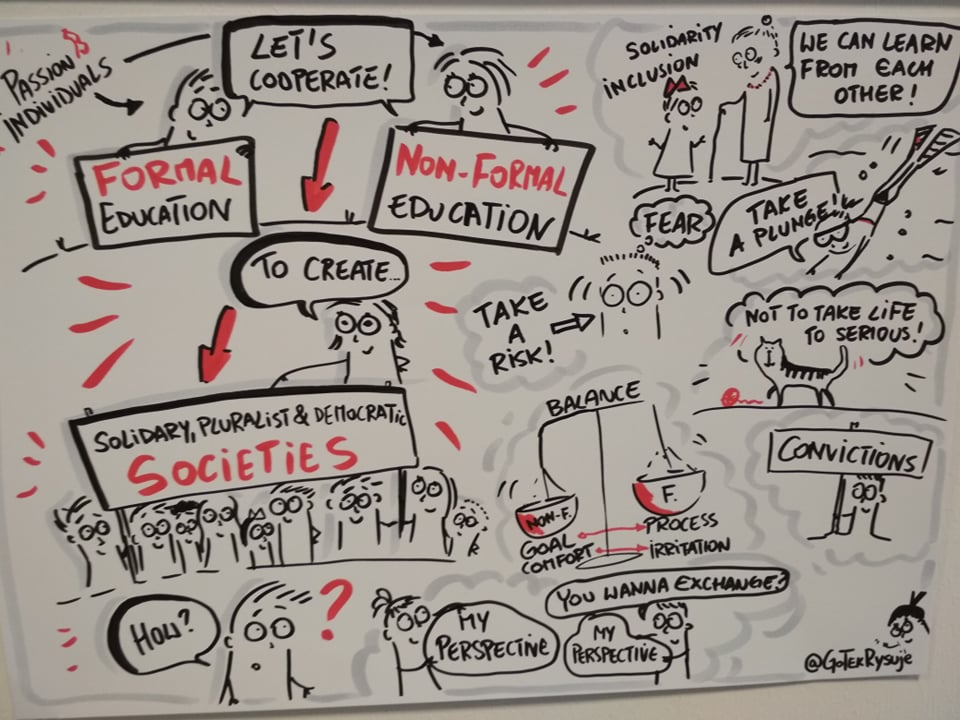 PASSION
INDIVIDUALS
LET'S
COOPERATE!
FORMAL
EDUCATION
NON-FORMAL
EDUCATION
TO CREATE...
SOLIDARY, PLURALIST & DEMOCRATIC
SOCIETIES
HOW?
?
MY
PERSPECTIVE
YOU WANNA EXCHANGE?
MY
PERSPECTIVE
SOLIDARITY
INCLUSION
WE CAN LEARN
FROM EACH
OTHER!
FEAR
TAKE
A PLUNGE!
TAKE
A
RISK!
NOT TO TAKE LIFE
TO SERIOUS!
BALANCE
NON-F.
F.
GOAL
PROCESS
COMFORT
IRRITATION
CONVICTIONS
@GOTEKRYSUJE